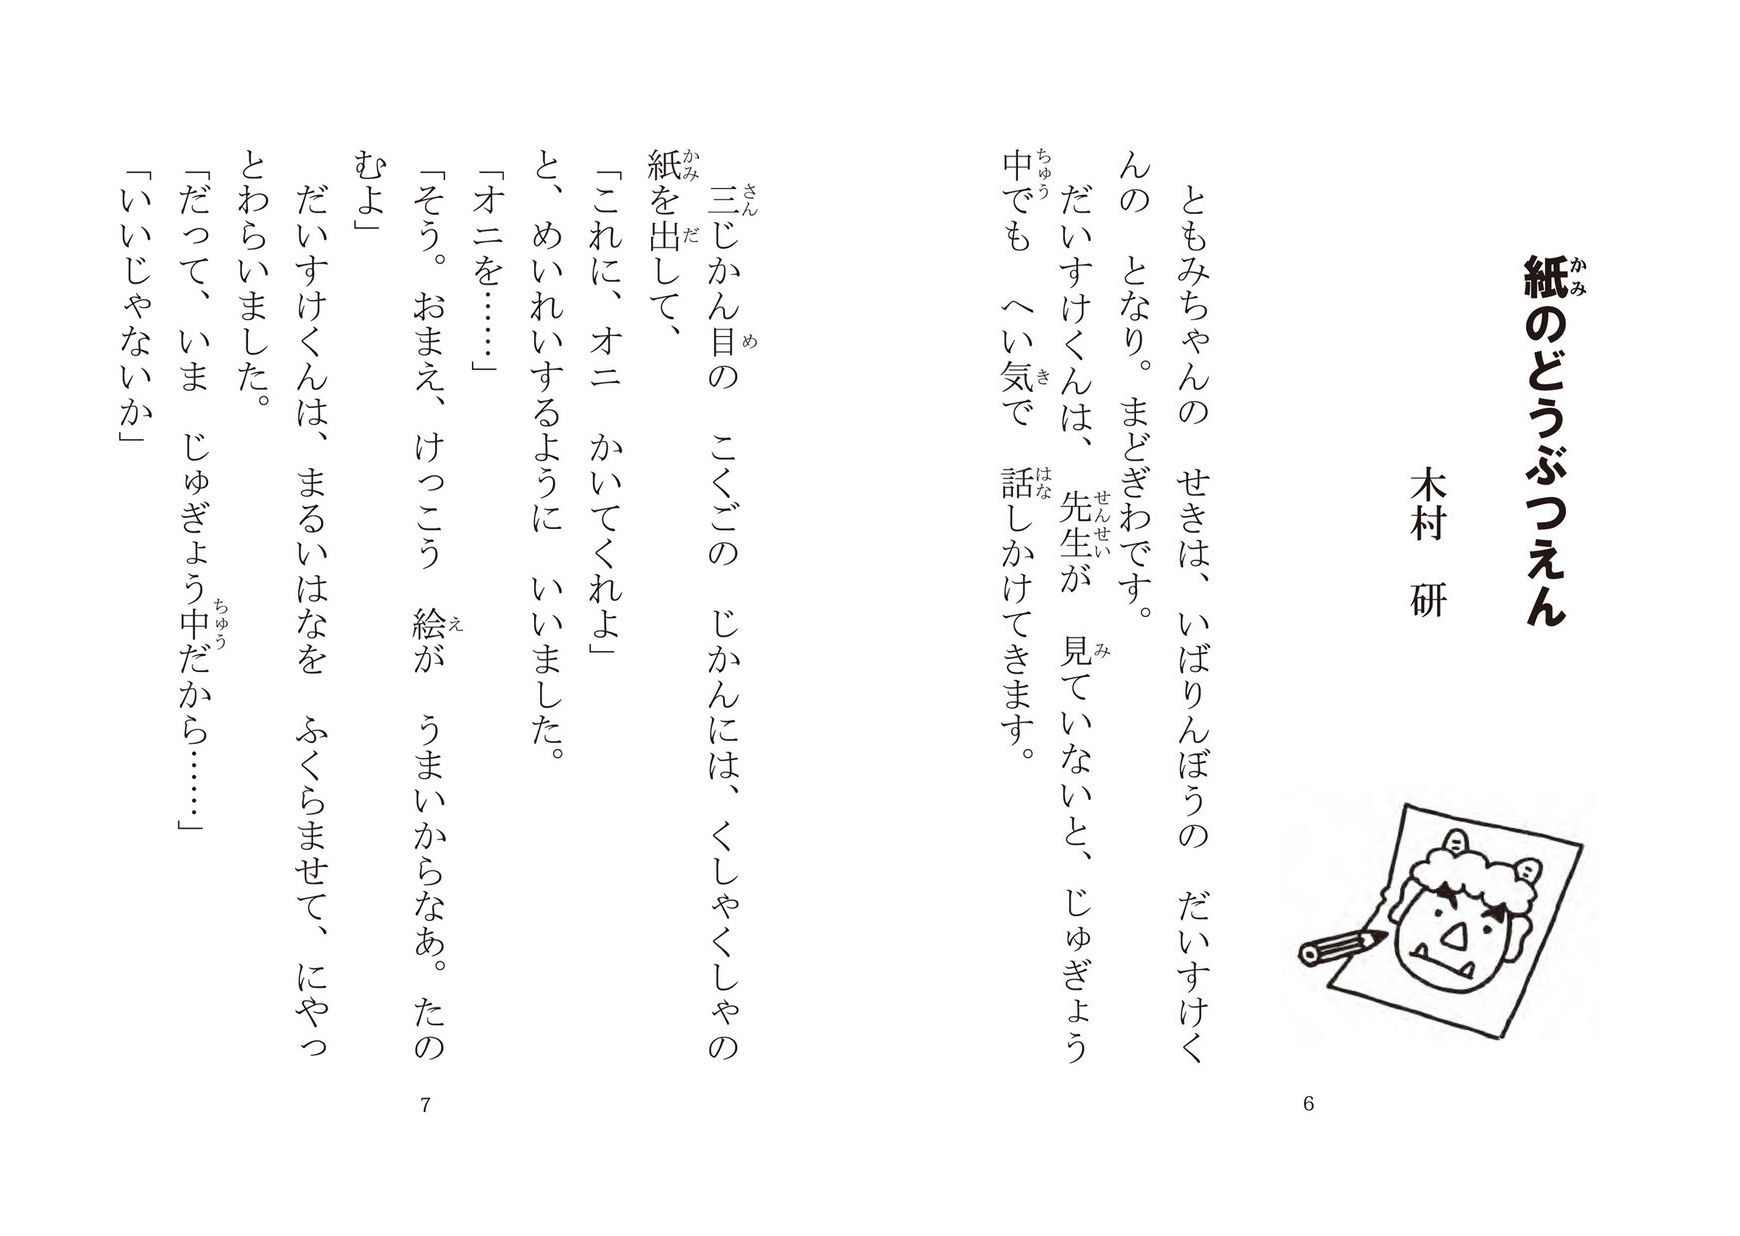 紙のどうぶつえん
木村　研
　ともみちゃんの　せきは、いばりんぼうの　だいすけく
んの　となり。まどぎわです。
　だいすけくんは、先生が　見ていないと、じゅぎょう
中でも　へい気で　話しかけてきます。
6
　三じかん目の　こくごの　じかんには、くしゃくしゃの
紙を出して、
「これに、オニ　かいてくれよ」
と、めいれいするように　いいました。
「オニを……」
「そう。おまえ、けっこう　絵が　うまいからなあ。たの
むよ」
　だいすけくんは、まるいはなを　ふくらませて、にやっ
とわらいました。
「だって、いま　じゅぎょう中だから……」
「いいじゃないか」
7